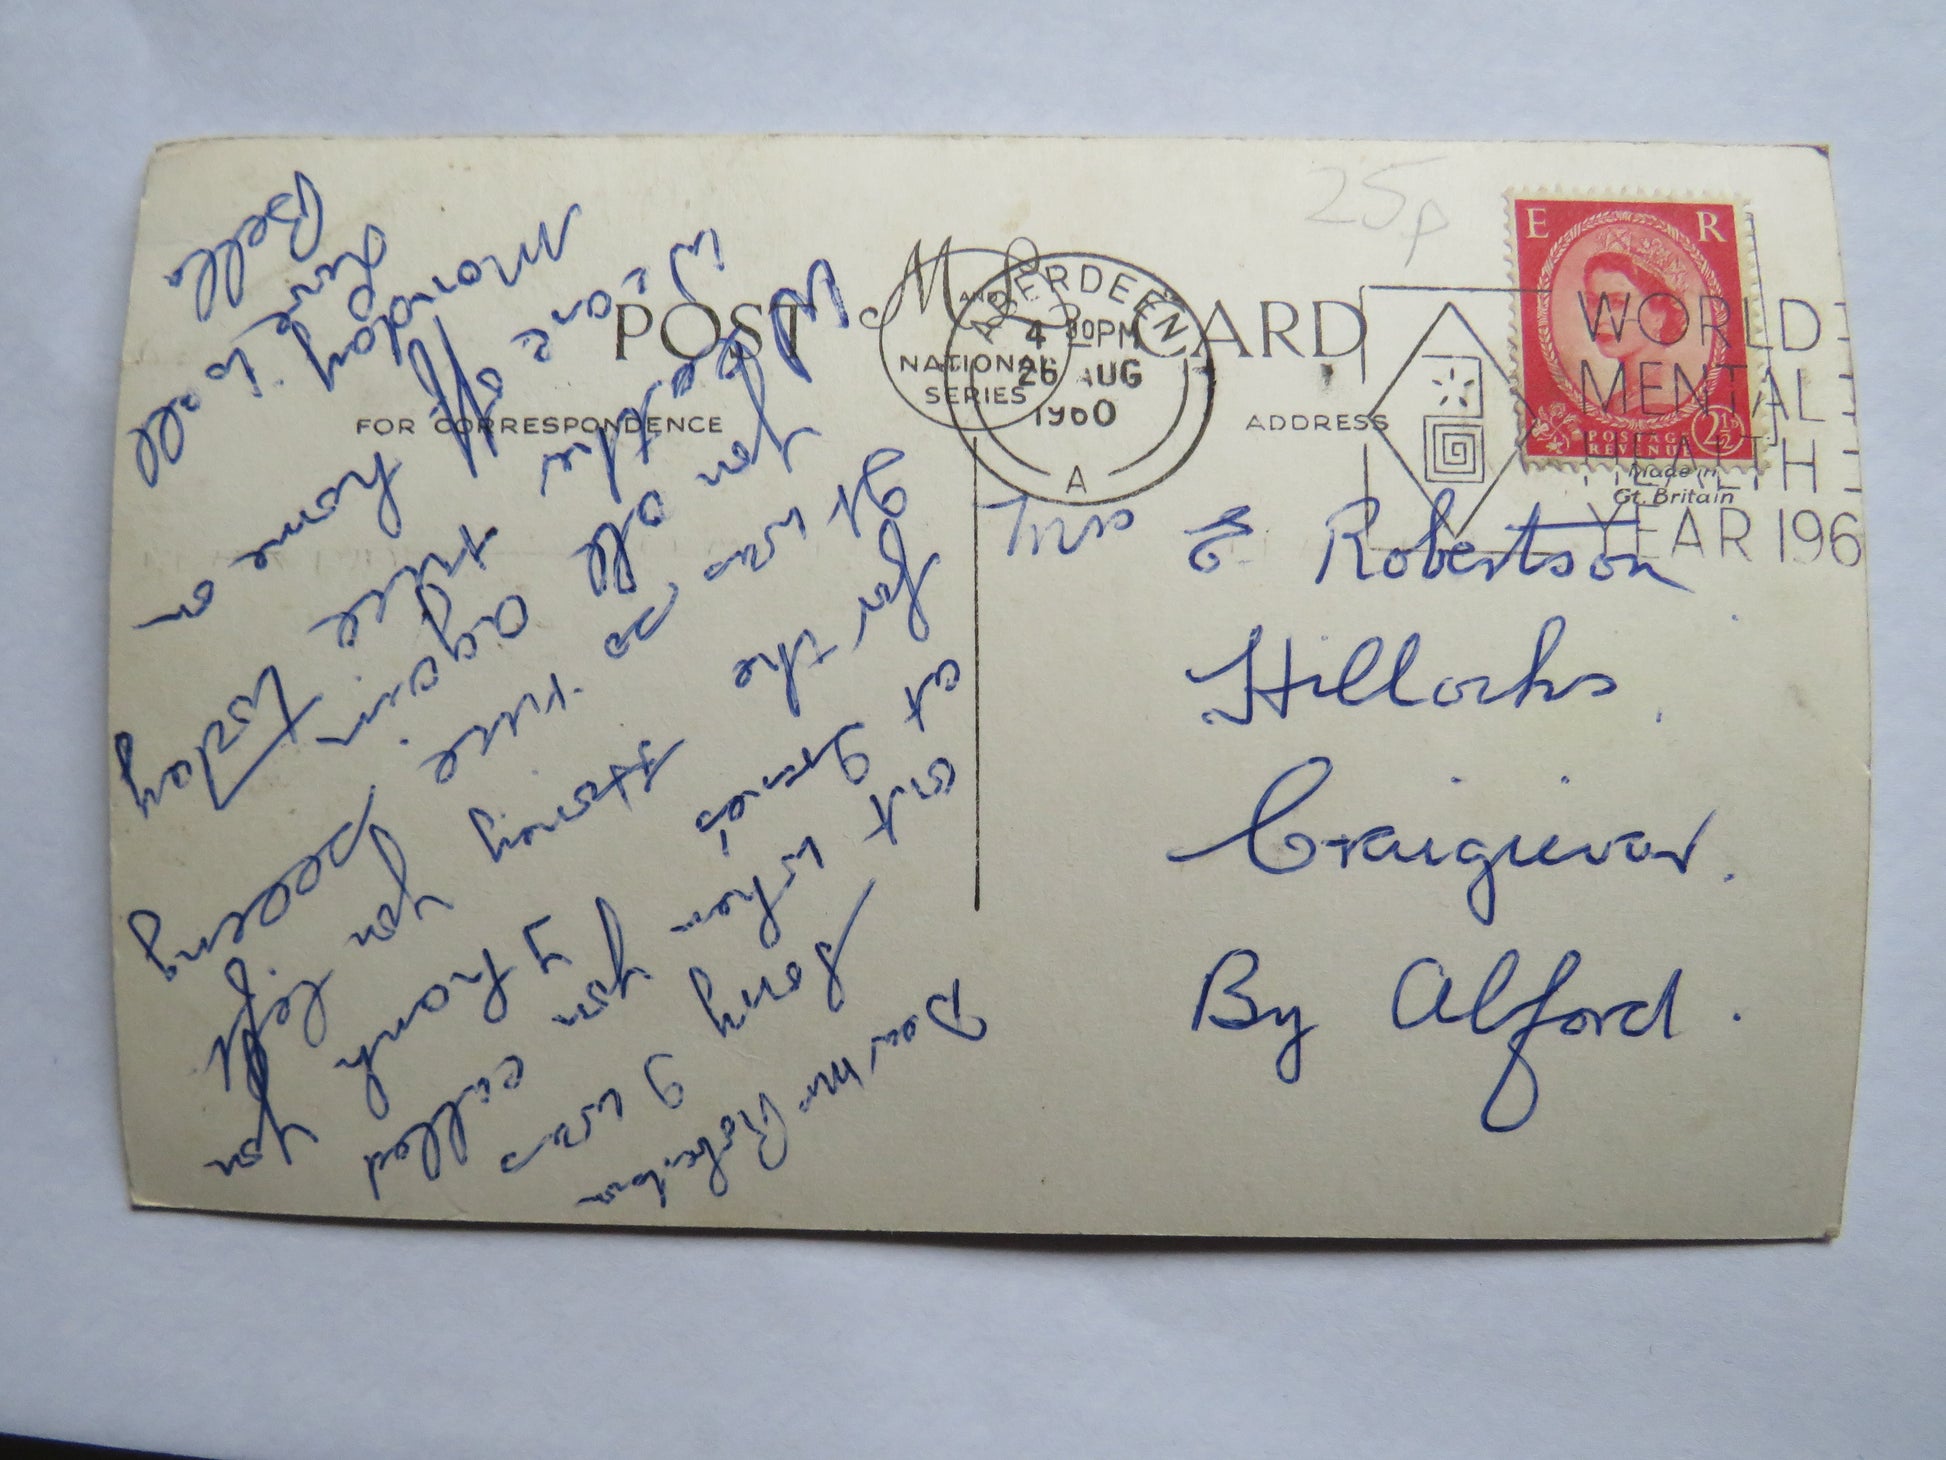 25p
E R
POSTAGE
REVENUE
2½D
Made in
Gt. Britain
WORLD
MENTAL
HEALTH
YEAR 196
POST CARD
M AND L
NATIONAL
SERIES
ABERDEEN
4 30PM
26 AUG
1960
A
FOR CORRESPONDENCE
ADDRESS
Mrs E. Robertson
Hillocks,
Craigievar.
By Alford.
Dear Mrs Robertson
Sorry I was
out when you called
at thank you
for the Honey you left
It was so nice seeing
you all again
Weather nice today
We are off home on
Monday.
Love to all
Bella